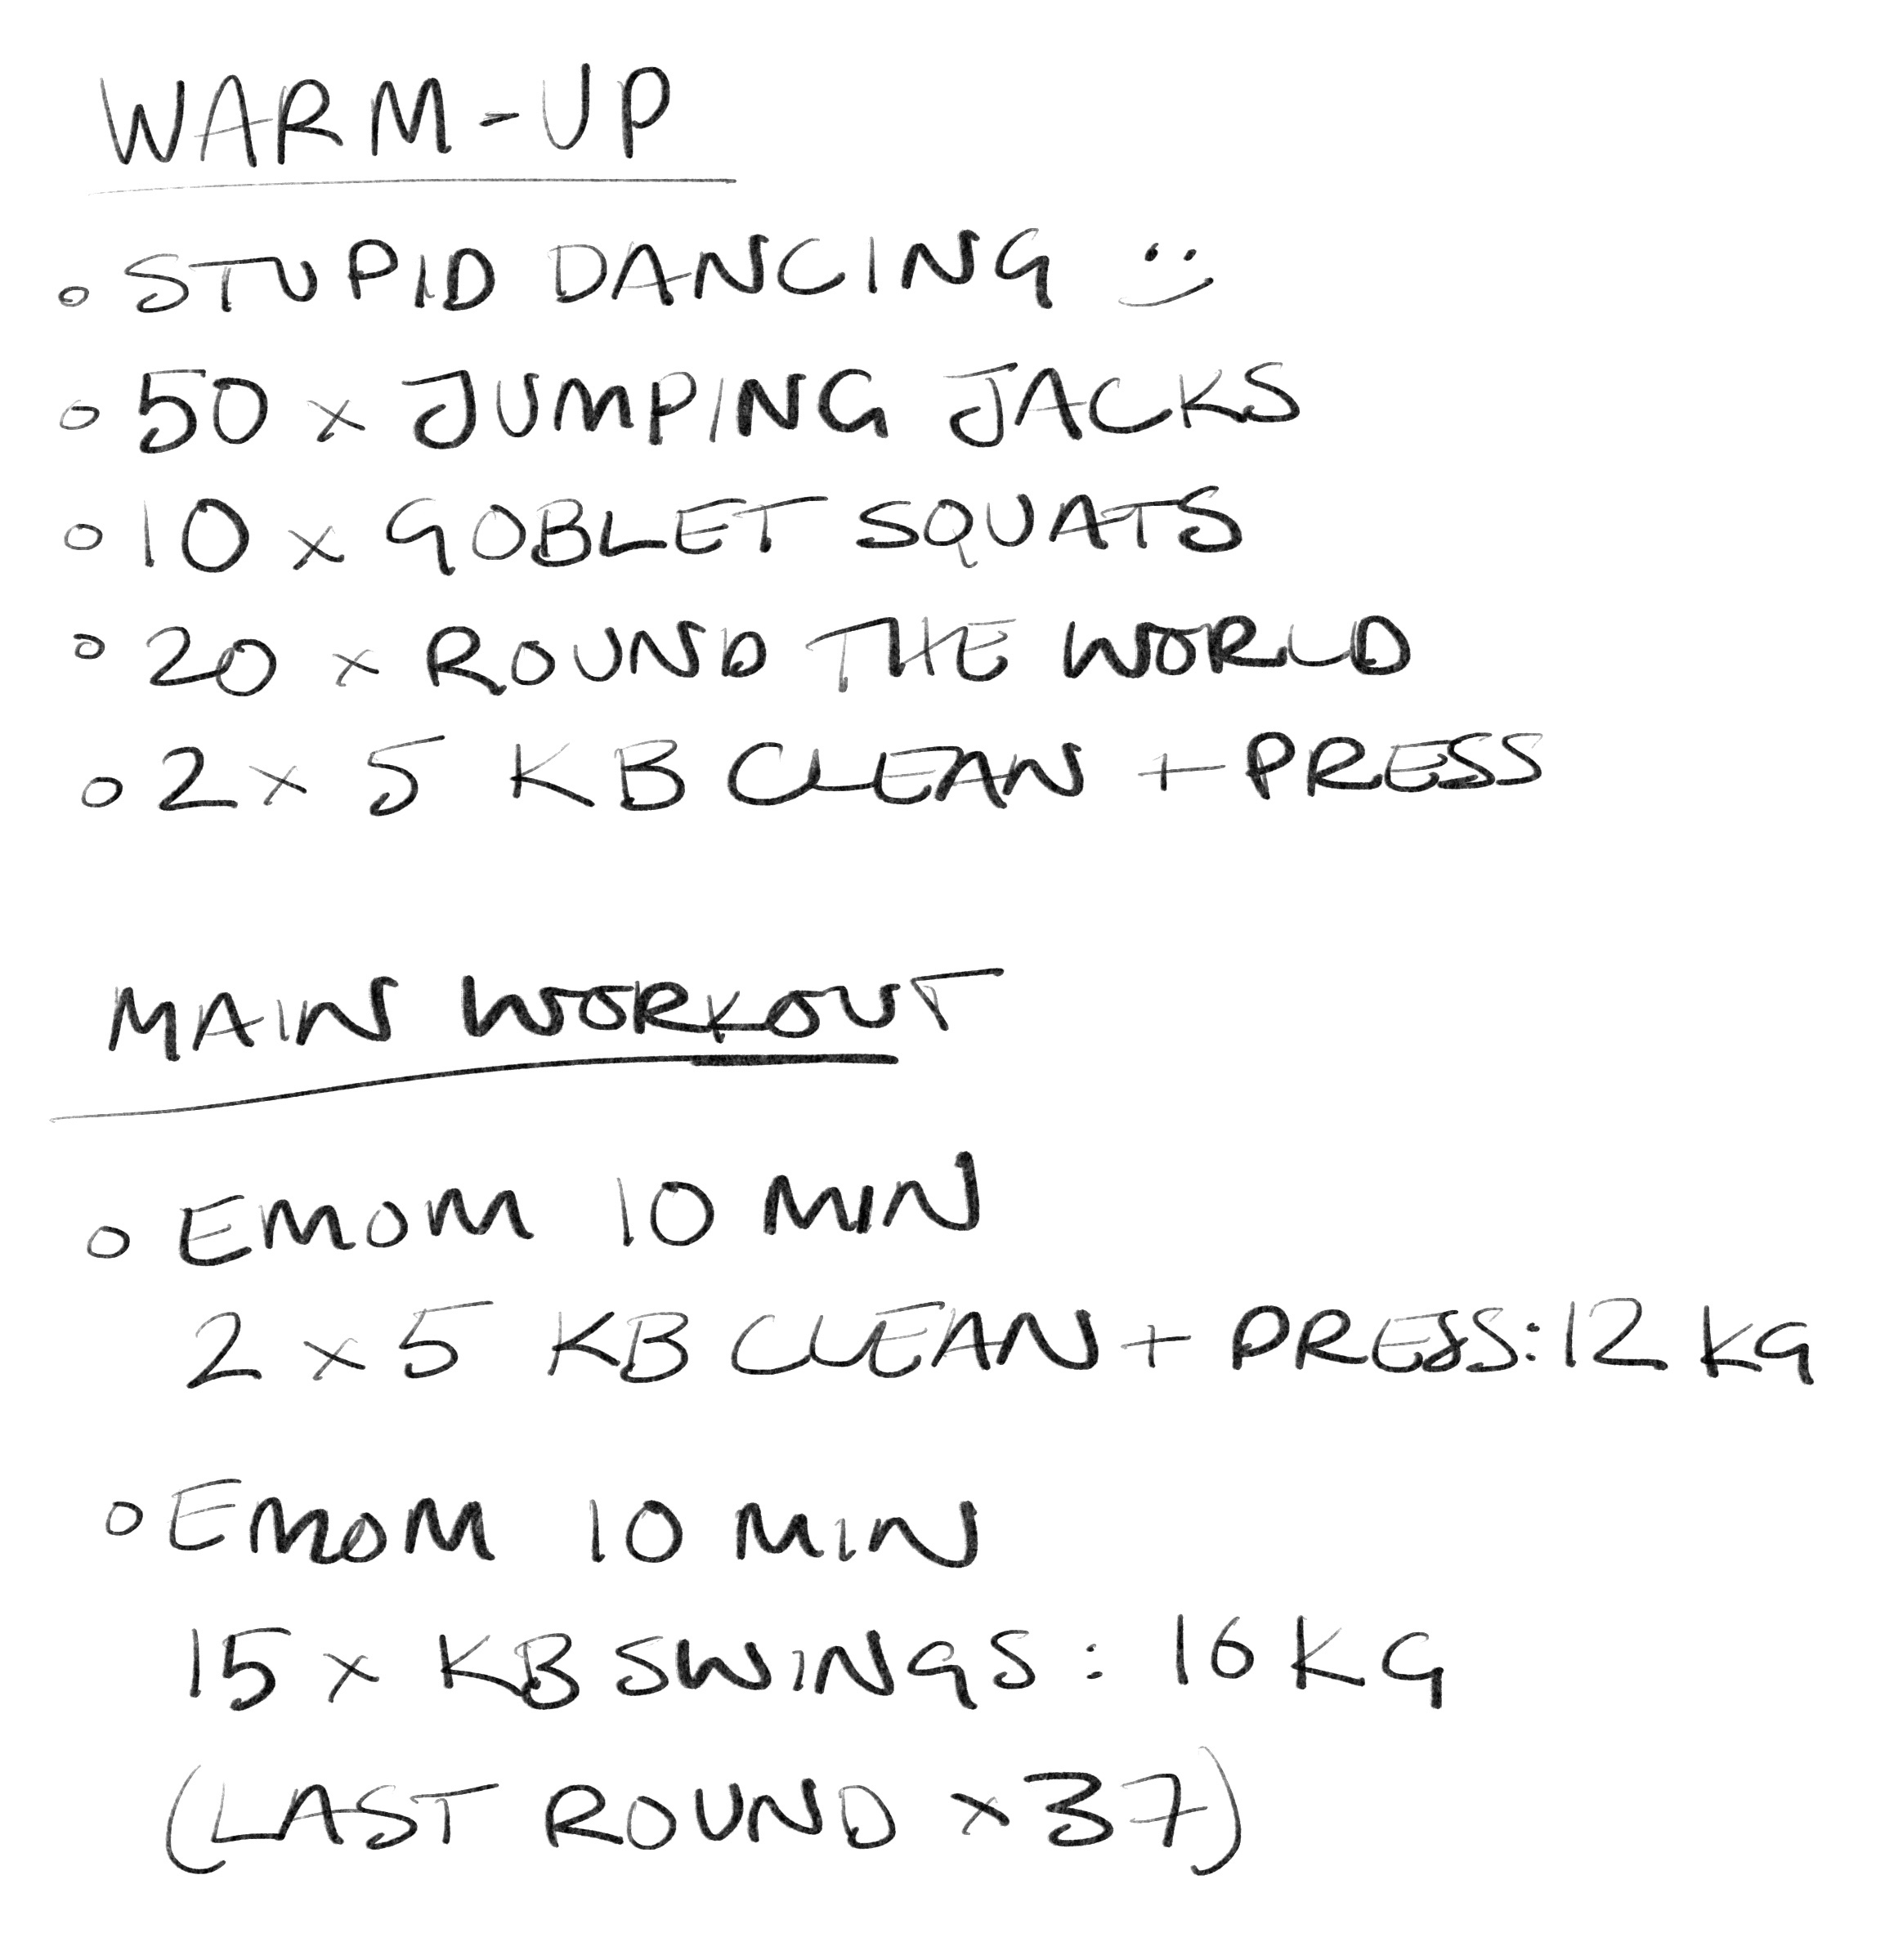 WARM-UP
◦ STUPID DANCING :)
◦ 50 x JUMPING JACKS
◦ 10 x GOBLET SQUATS
◦ 20 x ROUND THE WORLD
◦ 2 x 5 KB CLEAN + PRESS
MAIN WORKOUT
◦ EMOM 10 MIN
2 x 5 KB CLEAN + PRESS: 12 KG
◦ EMOM 10 MIN
15 x KB SWINGS: 16 KG
(LAST ROUND x 37)